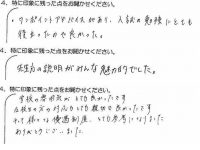 4. 特に印象に残った点をお聞かせください。
・ワンポイントアドバイスがあり、入試の勉強にとても
役立ったのが良かった。
4. 特に印象に残った点をお聞かせください。
先生方の説明がみんな魅力的でした。
4. 特に印象に残った点をお聞かせください。
学校の雰囲気がとても良かったです
とても親切で良かったです
とても参考になりました
ありがとうございました。